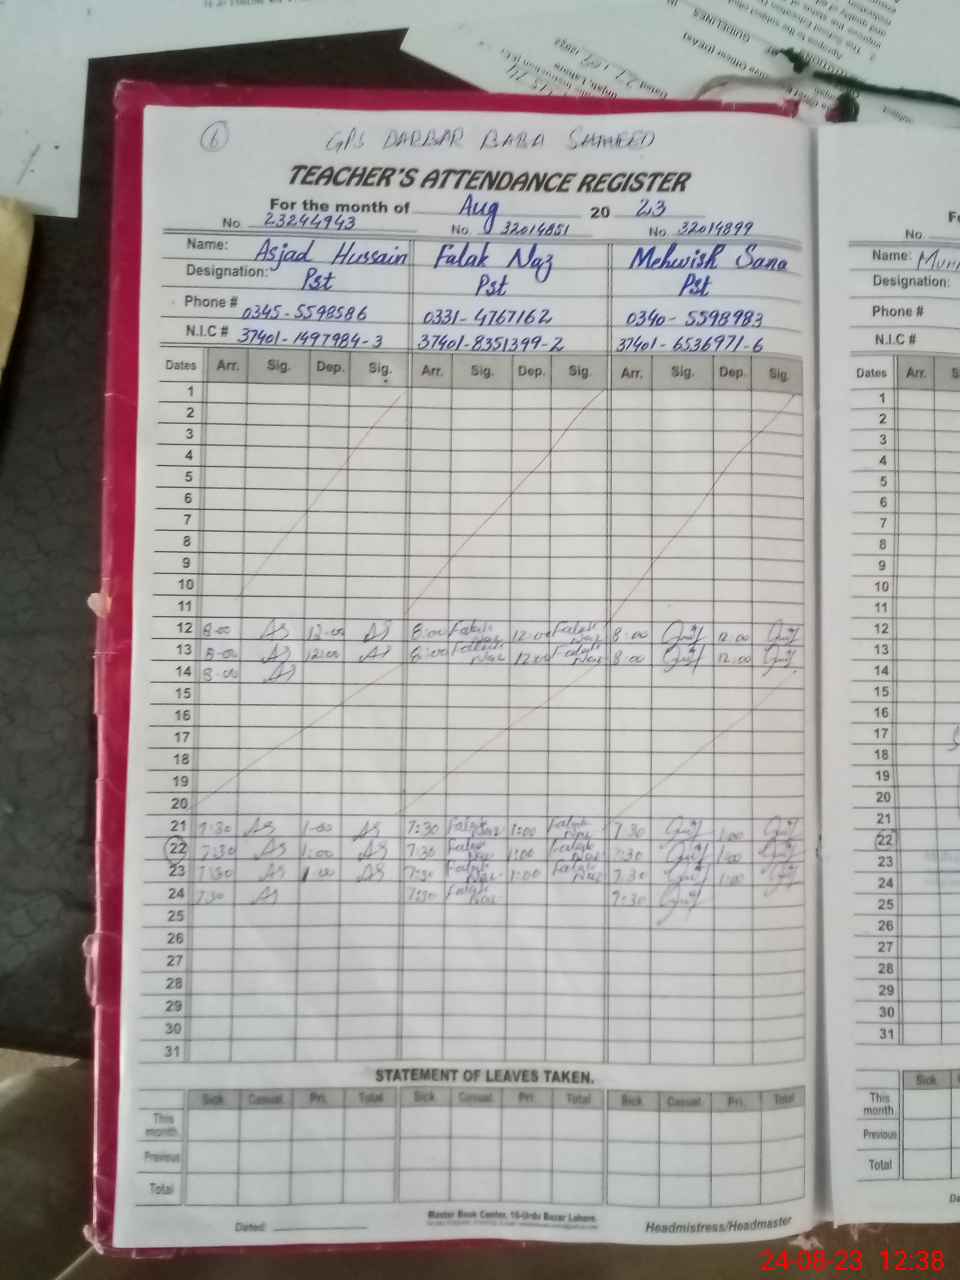 6
GPS DARBAR BABA SHAHEED
TEACHER'S ATTENDANCE REGISTER
For the month of Aug 20 23
No 23244943 No. 32014851 No. 32014899
Name: Asjad Hussain Falak Naz Mehwish Sana
Designation: Pst Pst Pst
Phone # 0345-5598586 0331-4767162 0340-5598983
N.I.C # 37401-1497984-3 37401-8351399-2 37401-6536971-6
Dates Arr. Sig. Dep. Sig. Arr. Sig. Dep. Sig. Arr. Sig. Dep. Sig.
1
2
3
4
5
6
7
8
9
10
11
12 8-00 AS 12-00 AS 8:00 Falak Naz 12:00 Falak Naz 8:00 12:00
13 8-00 AS 12:00 AS 8:00 Falak Naz 12:00 Falak Naz 8:00 12:00
14 8-00 AS
15
16
17
18
19
20
21 7:30 AS 1-00 AS 7:30 Falak Naz 1:00 Falak Naz 7:30 1:00
22 7:30 AS 1:00 AS 7:30 Falak Naz 1:00 Falak Naz 7:30 1:00
23 7:30 AS 1:00 AS 7:30 Falak Naz 1:00 Falak Naz 7:30 1:00
24 7:30 AS 7:30 Falak Naz 7:30
25
26
27
28
29
30
31
STATEMENT OF LEAVES TAKEN.
Sick Casual Pri. Total Sick Casual Pri. Total Sick Casual Pri. Total
This month
Previous
Total
Master Book Center, 16-Urdu Bazar Lahore.
Dated: Headmistress/Headmaster
No.
Name:
Designation:
Phone #
N.I.C #
Dates Arr.
1
2
3
4
5
6
7
8
9
10
11
12
13
14
15
16
17
18
19
20
21
22
23
24
25
26
27
28
29
30
31
Sick
This month
Previous
Total
GUIDELINES
24-08-23 12:38